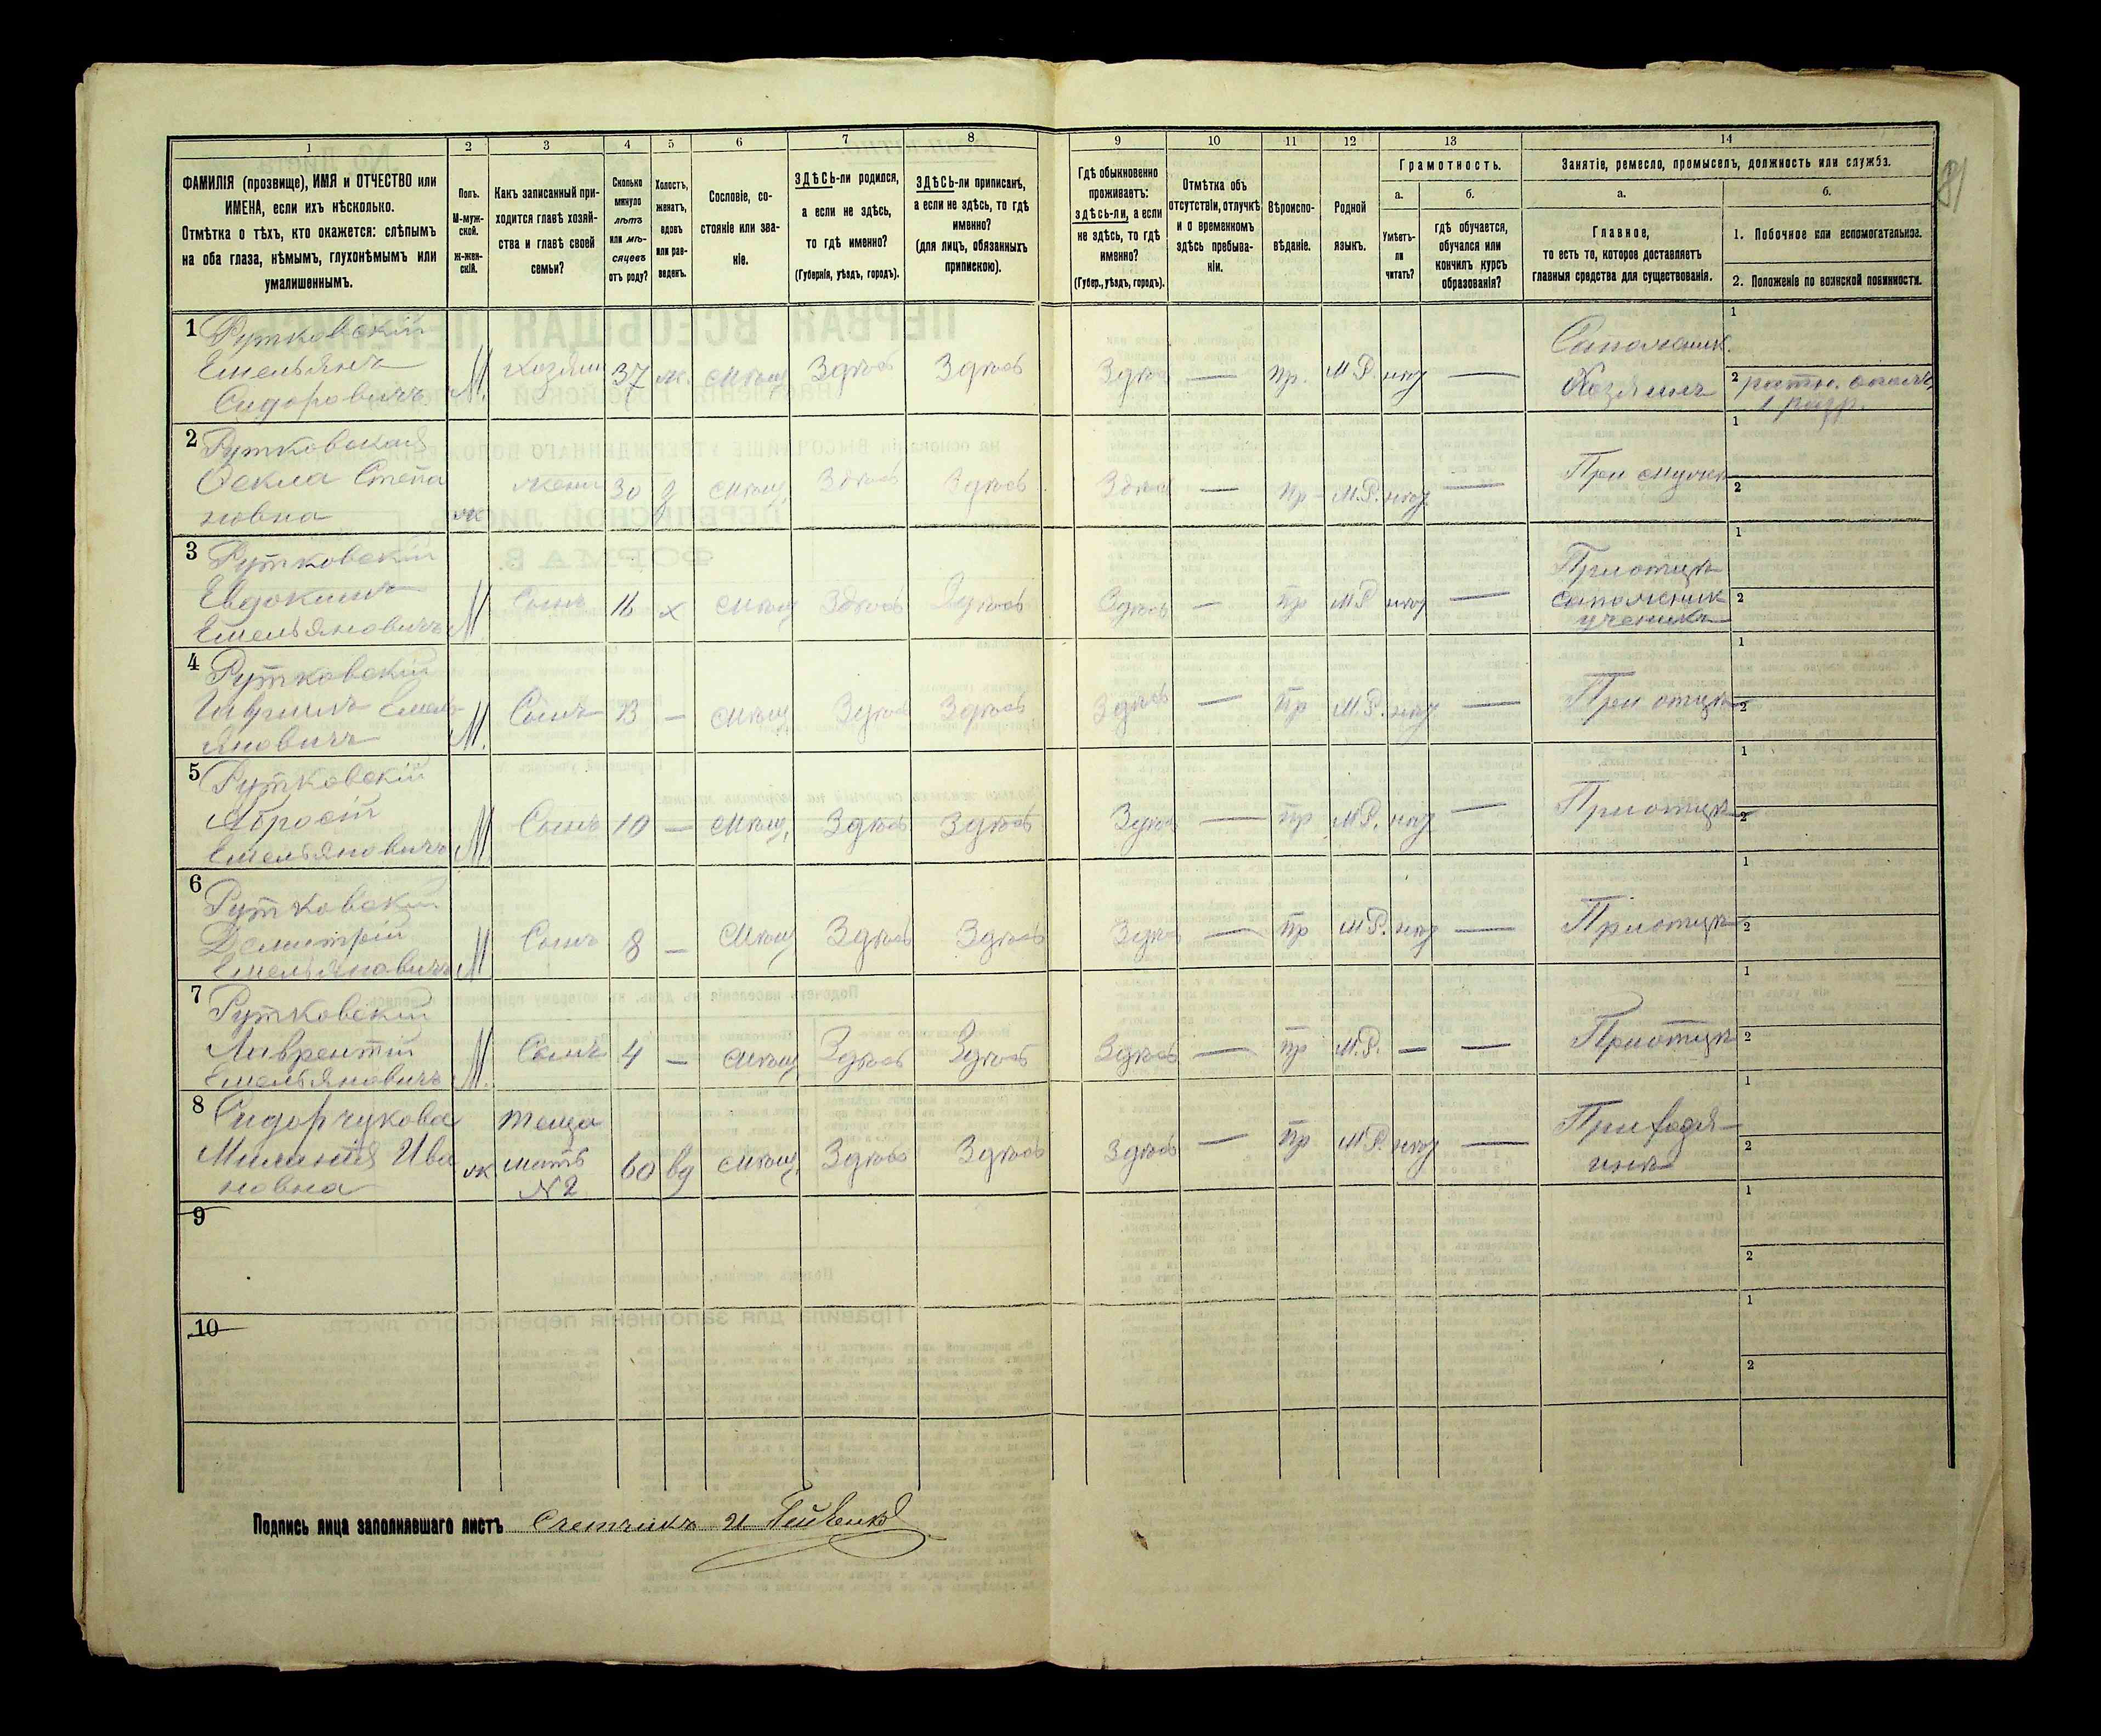 81
1 2 3 4 5 6 7 8 9 10 11 12 13 14
ФАМИЛІЯ (прозвище), ИМЯ и ОТЧЕСТВО или
ИМЕНА, если ихъ нѣсколько.
Отмѣтка о тѣхъ, кто окажется: слѣпымъ
на оба глаза, нѣмымъ, глухонѣмымъ или
умалишеннымъ.
Полъ.
М-муж-
ской.
ж-жен-
скій.
Какъ записанный при-
ходится главѣ хозяй-
ства и главѣ своей
семьи?
Сколько
минуло
лѣтъ
или мѣ-
сяцевъ
отъ роду?
Холостъ,
женатъ,
вдовъ
или раз-
веденъ.
Сословіе, со-
стояніе или зва-
ніе.
ЗДѢСЬ-ли родился,
а если не здѣсь,
то гдѣ именно?
(Губернія, уѣздъ, городъ).
ЗДѢСЬ-ли приписанъ,
а если не здѣсь, то гдѣ
именно?
(для лицъ, обязанныхъ
припискою).
Гдѣ обыкновенно
проживаетъ:
здѣсь-ли, а если
не здѣсь, то гдѣ
именно?
(Губер., уѣздъ, городъ).
Отмѣтка объ
отсутствіи, отлучкѣ
и о временномъ
здѣсь пребыва-
ніи.
Вѣроиспо-
вѣданіе.
Родной
языкъ.
Грамотность.
а.
Умѣетъ-
ли
читать?
б.
гдѣ обучается,
обучался или
кончилъ курсъ
образованія?
Занятіе, ремесло, промыселъ, должность или служба.
а.
Главное,
то есть то, которое доставляетъ
главныя средства для существованія.
б.
1. Побочное или вспомогательное.
2. Положеніе по воинской повинности.
1 Рутковскій
Емельянъ
Сидоровичъ
М. Хозяин 37 ж. мѣщ Здѣсь Здѣсь Здѣсь — пр. М.Р. нѣт —
Сапожник.
Хозяинъ
1
2 ратн. ополч.
1 разр.
2 Рутковская
Фекла Степа
новна
ж жена 30 з мѣщ. Здѣсь Здѣсь Здѣсь — пр — М.Р. нѣт —
При мужѣ
1
2
3 Рутковскій
Евдокимъ
Емельяновичъ
М Сынъ 16 х мѣщ Здѣсь Здѣсь Здѣсь — пр М.Р нѣт —
При отцѣ
сапожник
ученикъ
1
2
4 Рутковскій
Гавриилъ Емель
яновичъ
М. Сынъ 13 — мѣщ. Здѣсь Здѣсь Здѣсь — пр М.Р. нѣт —
При отцѣ
1
2
5 Рутковскій
Абросій
Емельяновичъ
М Сынъ 10 — мѣщ. Здѣсь Здѣсь Здѣсь — пр М.Р. нѣт —
При отцѣ
1
2
6 Рутковскій
Демитрій
Емельяновичъ
М Сынъ 8 — мѣщ Здѣсь Здѣсь Здѣсь — пр М.Р. нѣт —
При отцѣ
1
2
7 Рутковскій
Лаврентій
Емельяновичъ
М. Сынъ 4 — мѣщ Здѣсь Здѣсь Здѣсь — пр М.Р. — —
При отцѣ
1
2
8 Сидорчукова
Миланія Ива
новна
ж. теща
мать
№ 2
60 вд мѣщ. Здѣсь Здѣсь Здѣсь — пр М.Р. нѣт —
1
2
9
1
2
10
1
2
Подпись лица заполнявшаго листъ Счетчикъ И.